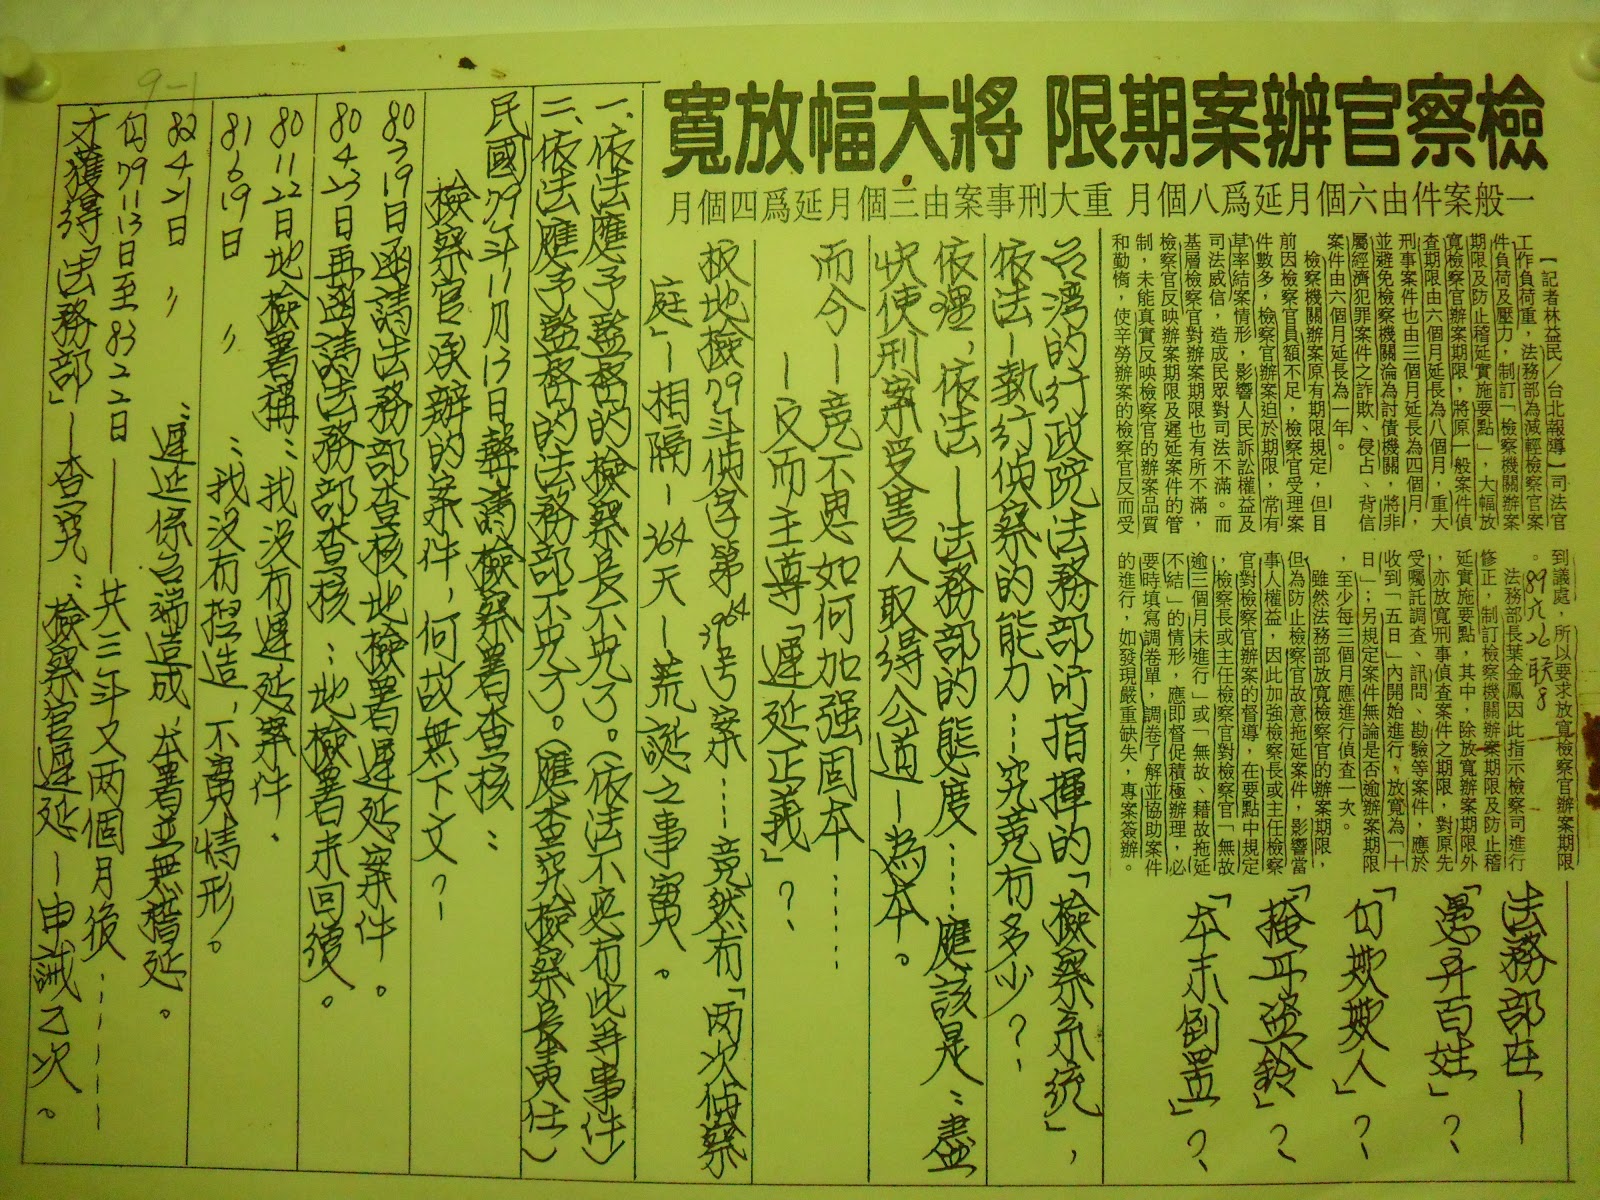 檢察官辦案期限 將大幅放寬
一般案件由六個月延爲八個月 重大刑事案由三個月延爲四個月
【記者林益民╱台北報導】司法官
工作負荷重，法務部為減輕檢察官案
件負荷及壓力，制訂「檢察機關辦案
期限及防止稽延實施要點」，大幅放
寬檢察官辦案期限，將原一般案件偵
查期限由六個月延長為八個月，重大
刑事案件也由三個月延長為四個月，
並避免檢察機關淪為討債機關，將非
屬經濟犯罪案件之詐欺、侵占、背信
案件由六個月延長為一年。
檢察機關辦案原有期限規定，但日
前因檢察官員額不足，檢察官受理案
件數多，檢察官辦案迫於期限，常有
草率結案情形，影響人民訴訟權益及
司法威信，造成民眾對司法不滿。而
基層檢察官對辦案期限也有所不滿，
檢察官反映辦案期限及遲延案件的管
制，未能真實反映檢察官的辦案品質
和勤惰，使辛勞辦案的檢察官反而受
到議處，所以要求放寬檢察官辦案期限
。
法務部長葉金鳳因此指示檢察司進行
修正，制訂檢察機關辦案期限及防止稽
延實施要點，其中，除放寬辦案期限外
，亦放寬刑事偵查案件之期限，對原先
受囑託調查、訊問、勘驗等案件，應於
收到「五日」內開始進行，放寬為「十
日」；另規定案件無論是否逾辦案期限
，至少每三個月應進行偵查一次。
雖然法務部放寬檢察官的辦案期限，
但為防止檢察官故意拖延案件，影響當
事人權益，因此加強檢察長或主任檢察
官對檢察官辦案的督導，在要點中規定
，檢察長或主任檢察官對檢察官「無故
逾三個月未進行」或「無故、藉故拖延
不結」的情形，應即督促積極辦理，必
要時填寫調卷單，調卷了解並協助案件
的進行，如發現嚴重缺失，專案簽辦。
法務部在—
「愚弄百姓」？
「自欺欺人」？
「掩耳盜鈴」？
「本末倒置」？
台湾的行政院法務部所指揮的「檢察系統」，
依法—執行偵察的能力…究竟有多少？
依理，依法—法務部的態度……應該是：盡
快使刑案受害人取得公道—為本。
而今—竟不思如何加強固本……
—反而主尊「遲延正義」？
板地檢79年偵字第3964號案……竟然有「两次偵察
庭」—相隔—364天—荒誕之事實。
一、依法應予監督的檢察長不見了。（依法不應有此等事件）
二、依法應予監督的法務部不見了。（應查究檢察長責任）
民國79年11月13日聲請檢察署查核：
檢察官承辦的案件，何故無下文？
80 2 19日函請法務部查核地檢署遲延案件。
80 4 23日再函請法務部查核：地檢署未回復。
80 11 22日地檢署稱：我沒有遲延案件。
81 6 19日 〃 ：我沒有捏造，不實情形。
82 4 21日 〃 ：遲延係台端造成，本署並無稽延。
自79 11 13日至83 2 22日——共三年又两個月後……
才獲得「法務部」—查究：檢察官遲延—申誡乙次。
9-1